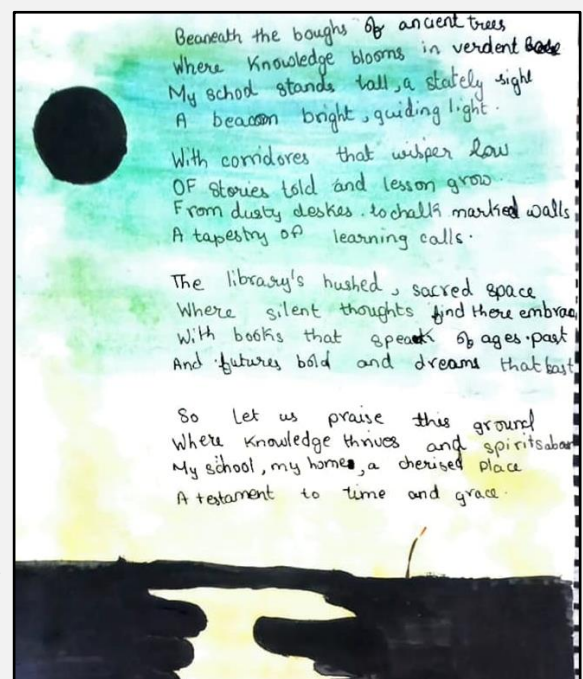 Beaneath the boughs of ancient trees
Where Knowledge blooms in verdent
My school stands tall, a stately sight
A beacon bright, guiding light.
With corridores that wisper low
OF stories told and lesson grow.
From dusty deskes. to chalk marked walls
A tapestry of learning calls.
The library's hushed, sacred space
Where silent thoughts find there
With books that speak of ages.past
And futures bold and dreams that
So let us praise this ground
Where Knowledge thrives and spirits
My school, my home, a cherised place
A testament to time and grace.